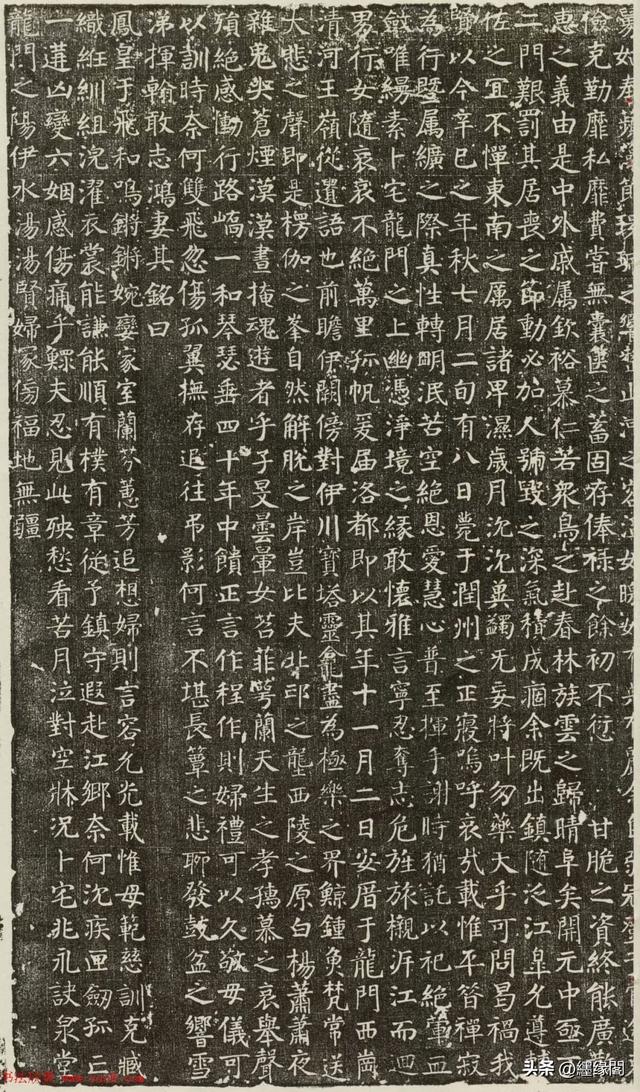 儉克勤靡私靡費嘗無囊篋之蓄固存俸祿之餘初不愆 甘脆之資終能廣
惠之義由是中外戚属欽裕慕仁若衆鳥之赴春林族雲之歸晴阜矣開元中亟丁
二門艱罰其居喪之節動必加人號毀之深氣積成痼余既出鎮隨泛江皐允遵
佐之宜不憚東南之厲居諸卑濕歲月沈沈冀蠲无妄將叶勿藥大乎可問昌禍我
賢以今辛巳之年秋七月二旬有八日薨于潤州之正寢嗚呼哀哉載惟平昔禪寂
為行暨属纊之際真性轉明泯苦空絕恩愛慧心普至揮手謝時猶託以祀絕葷血
斂唯縵素卜宅龍門之上幽憑淨境之緣敢懷雅言寧忍奪志危旌旅櫬泝江而迴
男行女隨哀哀不絕萬里孤帆爰届洛都即以其年十一月二日安厝于龍門西崗
清河王嶺從遷語也前瞻伊闕傍對伊川寶塔靈龕盡為極樂之界鯨鍾魚梵常送
大悲之聲即是楞伽之峯自然解脫之岸豈比夫北邙之壟西陵之原白楊蕭蕭夜
雜鬼哭蒼煙漠漠晝掩魂遊者乎子旻曇暈女苕菲萼蘭天生之孝孺慕之哀舉聲
殞絕感慟行路嶠一和琴瑟垂四十年中饋正言作程作則婦禮可以久敬母儀可
以訓時奈何雙飛忽傷孤翼撫存追往弔影何言不堪長簟之悲聊發鼓盆之響雪
涕揮翰敢志鴻妻其銘曰
鳳皇于飛和鳴鏘鏘婉孌家室蘭芬蕙芳追想婦則言容允光載惟母範慈訓克臧
織紝紃組浣濯衣裳能謙能順有樸有章從予鎮守遐赴江鄉奈何沈疾匣劒孤亡
一遘凶變六姻感傷痛乎鰥夫忍見此殃愁看苦月泣對空牀況卜宅兆永訣泉堂
龍門之陽伊水湯湯賢婦冢傍福地無疆
头条 @經缘閣